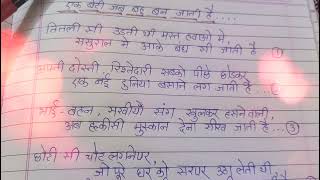 एक बेटी जब बहु बन जाती है....
तितली सी उड़ती थी मस्त हवाओ मे,
ससुराल मे आके बंध सी जाती है ①
अपनी दोस्ती रिश्तेदारी सबको पीछे छोडकर
एक नई दुनिया बसाने लग जाती है... ②
भाई-बहन, सखीयो संग खुलकर हसनेवाली,
अब हल्कीसी मुस्कान देना सीख जाती है...③
छोटी सी चोट लगनेपर
जो पूरे घर को सरपर उठा लेती थी